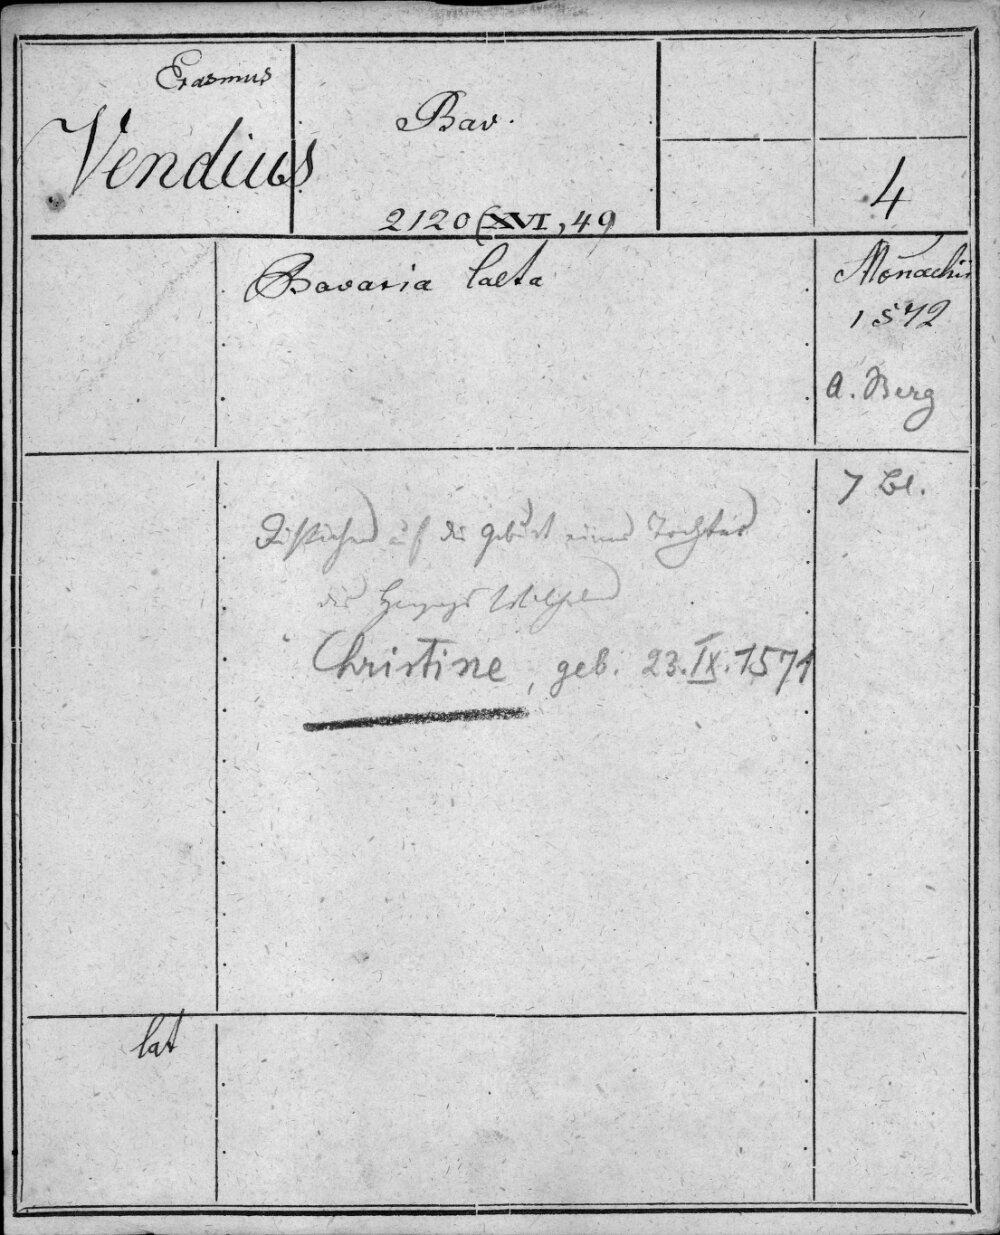 Erasmus
Vendius
Bav.
2120 (XVI, 49
4
Bavaria laeta
Monachii
1572
A. Berg
7 Bl.
Distichen auf die Geburt einer Tochter
des Herzogs Wilhelm
Christine, geb. 23.IX.1571
lat